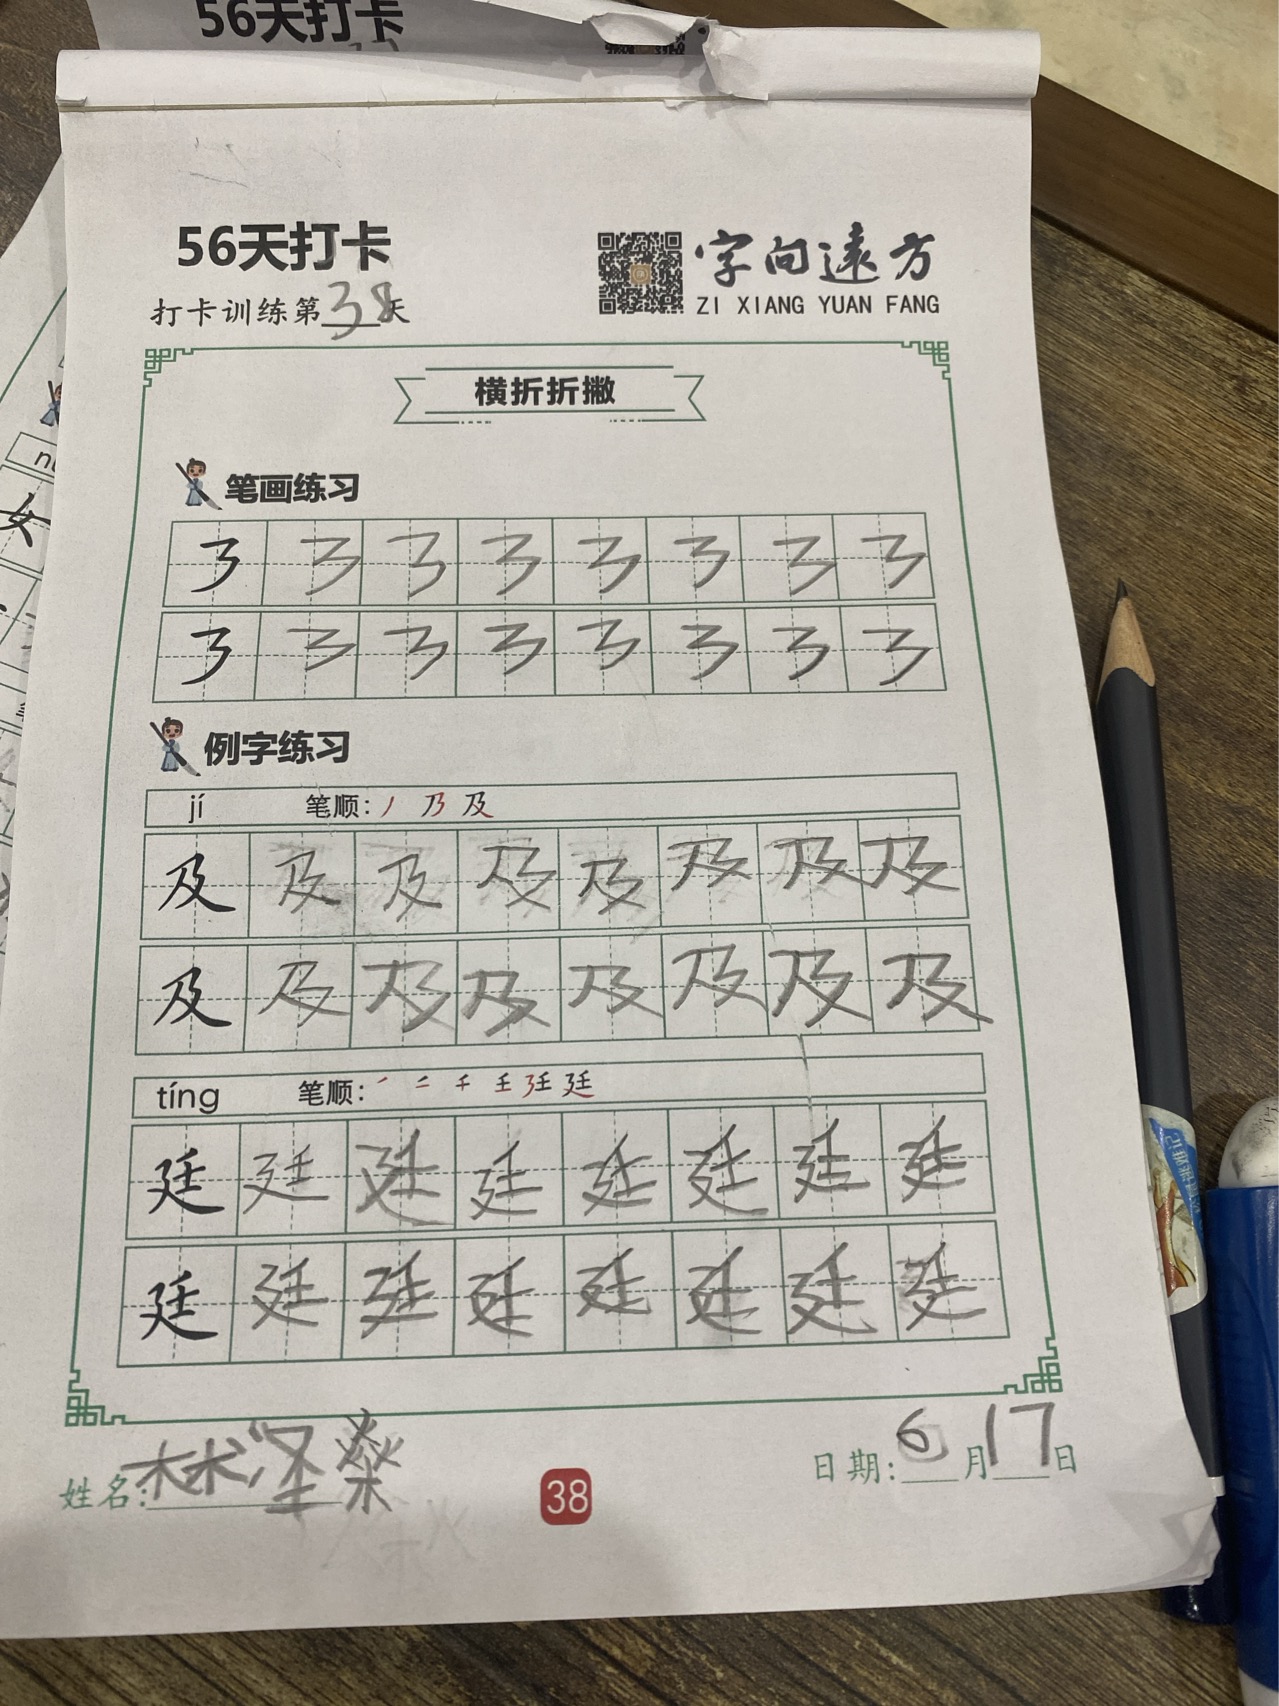 56天打卡
56天打卡
打卡训练第38天
字向遠方
ZI XIANG YUAN FANG
横折折撇
笔画练习
例字练习
jí 笔顺: 丿 乃 及
及 及 及 及 及 及 及 及
及 及 及 及 及 及 及 及
tíng 笔顺:
廷 廷 廷 廷 廷 廷 廷 廷
廷 廷 廷 廷 廷 廷 廷 廷
姓名: 林泽燊
38
日期: 6月17日
女